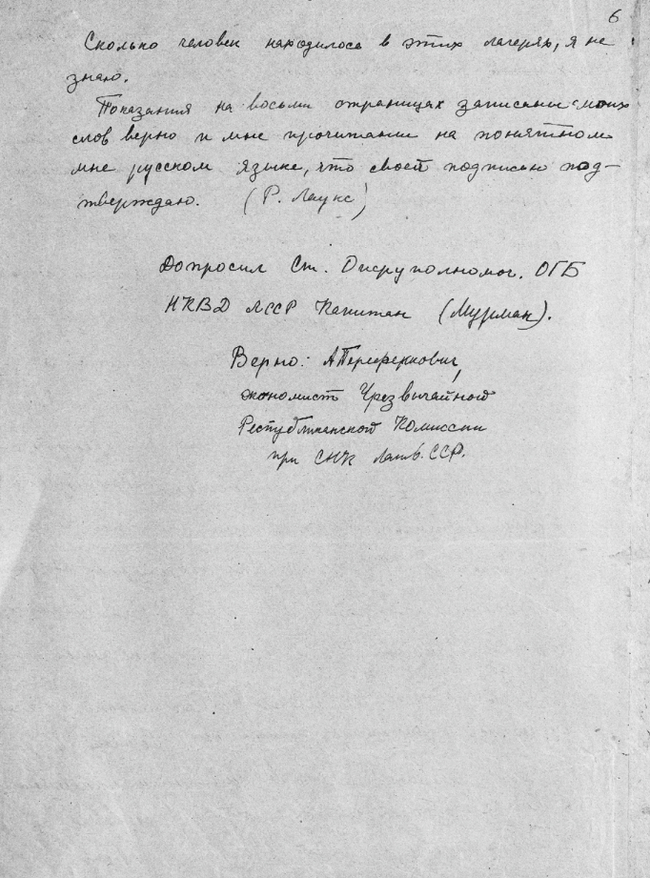 6
Сколько человек находилось в этих лагерях, я не
знаю.
Показания на восьми страницах записаны с моих
слов верно и мне прочитаны на понятном
мне русском языке, что своей подписью под-
тверждаю. (Р. Лаукс)
Допросил Ст. Оперуполномоч. ОГБ
НКВД ЛССР Капитан (Мурман).
Верно: А Переферкович,
экономист Чрезвычайной
Республиканской Комиссии
при СНК Латв. ССР.